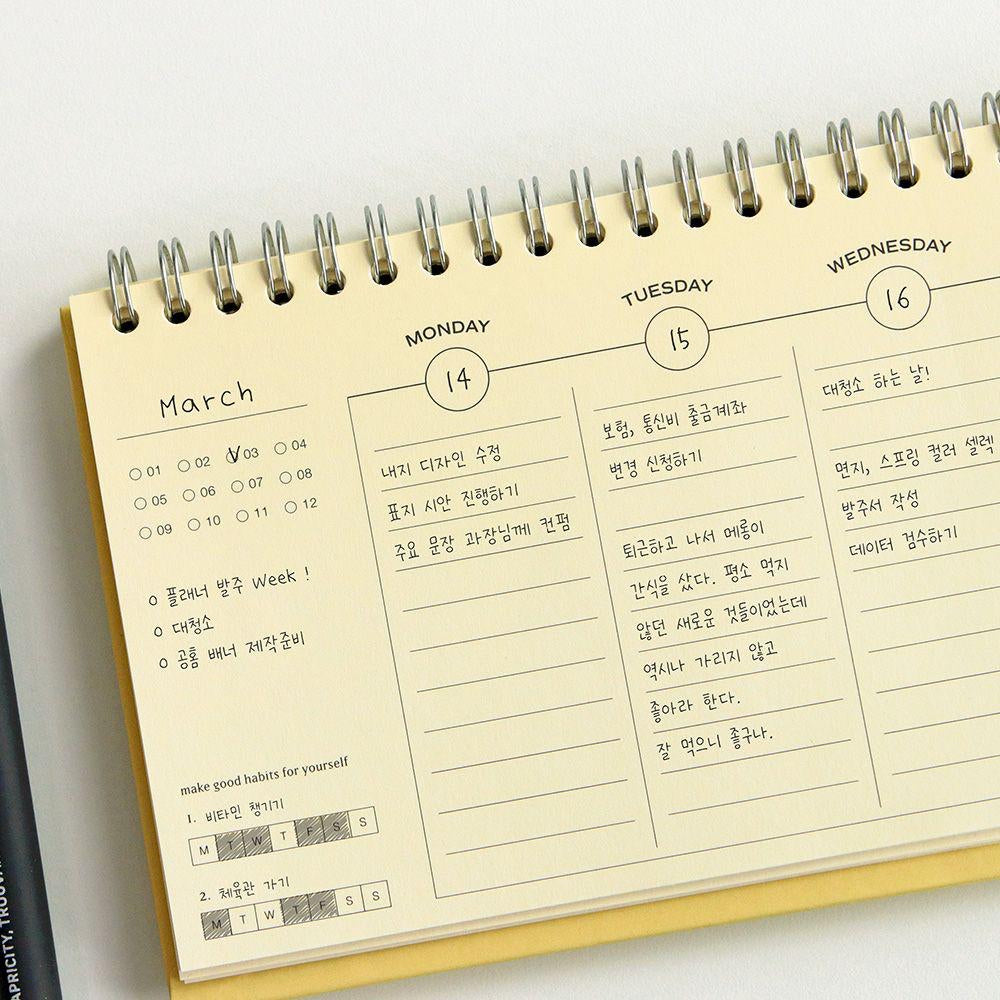 March
01 02 03 04
05 06 07 08
09 10 11 12
o 플래너 발주 Week !
o 대청소
o 공홈 배너 제작준비
make good habits for yourself
1. 비타민 챙기기
M T W T F S S
2. 체육관 가기
M T W T F S S
MONDAY
14
내지 디자인 수정
표지 시안 진행하기
주요 문장 과장님께 컨펌
TUESDAY
15
보험, 통신비 출금계좌
변경 신청하기
퇴근하고 나서 메롱이
간식을 샀다. 평소 먹지
않던 새로운 것들이었는데
역시나 가리지 않고
좋아라 한다.
잘 먹으니 좋구나.
WEDNESDAY
16
대청소 하는 날!
면지, 스프링 컬러 셀렉
발주서 작성
데이터 검수하기
APRICITY,